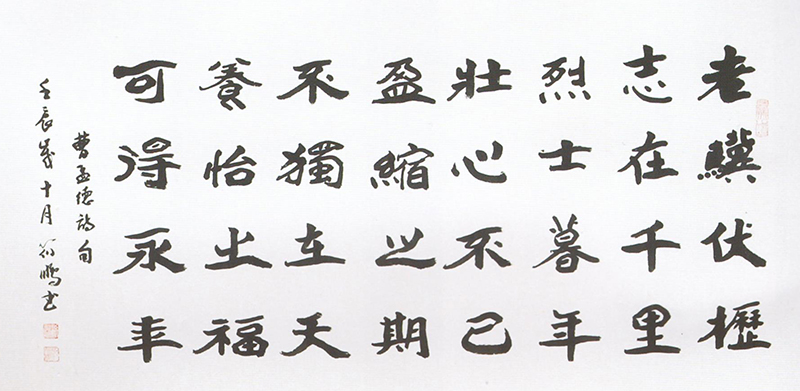 老驥伏櫪
志在千里
烈士暮年
壯心不已
盈縮之期
不獨在天
養怡之福
可得永年
曹孟德詩句
壬辰歲十月 鵬書